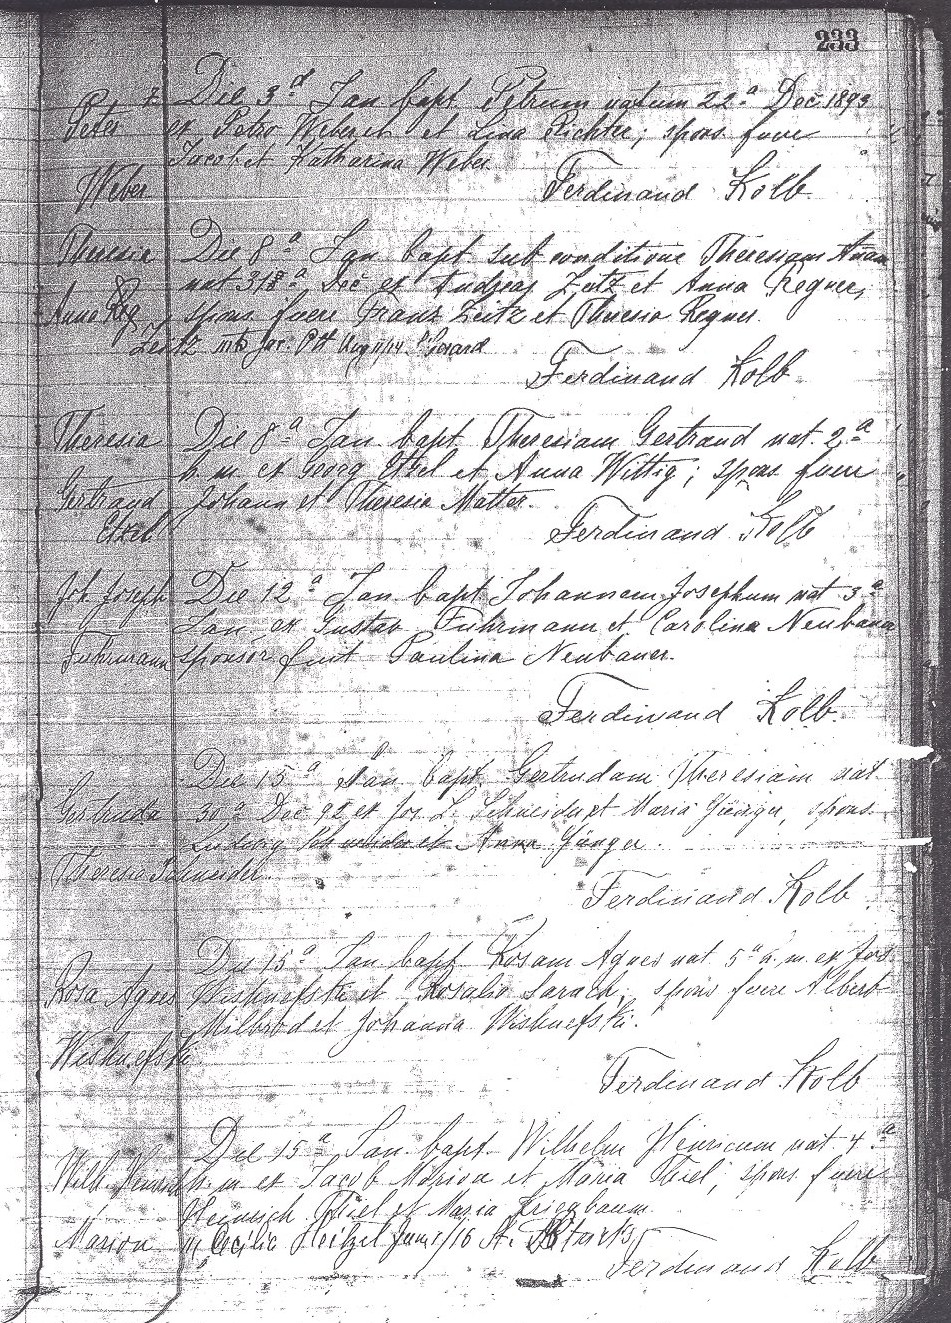 233
Die 3ª Jan bapt Petrum natum 22ª Dec 1893
Peter ex Petro Weber et Lina Richter; spons fuere
Jacob et Katharina Weber
Weber Ferdinand Kolb
Theresia Die 8ª Jan bapt sub conditione Theresiam Anna
nat 31ª Dec ex Andreas Zeitz et Anna Regner,
Anna Reg spons fuere Franz Zeitz et Theresia Regner.
Zeitz
Ferdinand Kolb
Theresia Die 8ª Jan bapt Theresiam Gertraud nat. 2ª
h. m ex Georg Etzel et Anna Wittig; spons fuere
Gertraud Johann et Theresia Matter.
Etzel Ferdinand Kolb
Joh. Joseph Die 12ª Jan bapt Johannem Josephum nat 3ª
Jan ex Gustav Fuhrmann et Carolina Neubauer
Fuhrmann sponsor fuit Paulina Neubauer.
Ferdinand Kolb
Die 15ª Jan bapt. Gertrudam Theresiam nat
Gertruda 30ª Dec 92 ex Jos. L. Schneider et Maria Jünger, spons.
Ludwig Schneider et Anna Jünger.
Theresia Schneider
Ferdinand Kolb
Die 15ª Jan bapt Rosam Agnes nat 5ª h. m. ex Jos.
Rosa Agnes Wishnefski et Rosalia; spons fuere Albert
et Johanna Wishnefski.
Wishnefski
Ferdinand Kolb
Die 15ª Jan bapt. Wilhelm Henricum nat 4ª
Wilh. Heinrich h. m ex Jacob Marion et Maria Thiel; spons fuere
Heinrich Thiel et Maria Kriegbaum.
Marion Cecilia Heitzel June 1/16 St.
Ferdinand Kolb